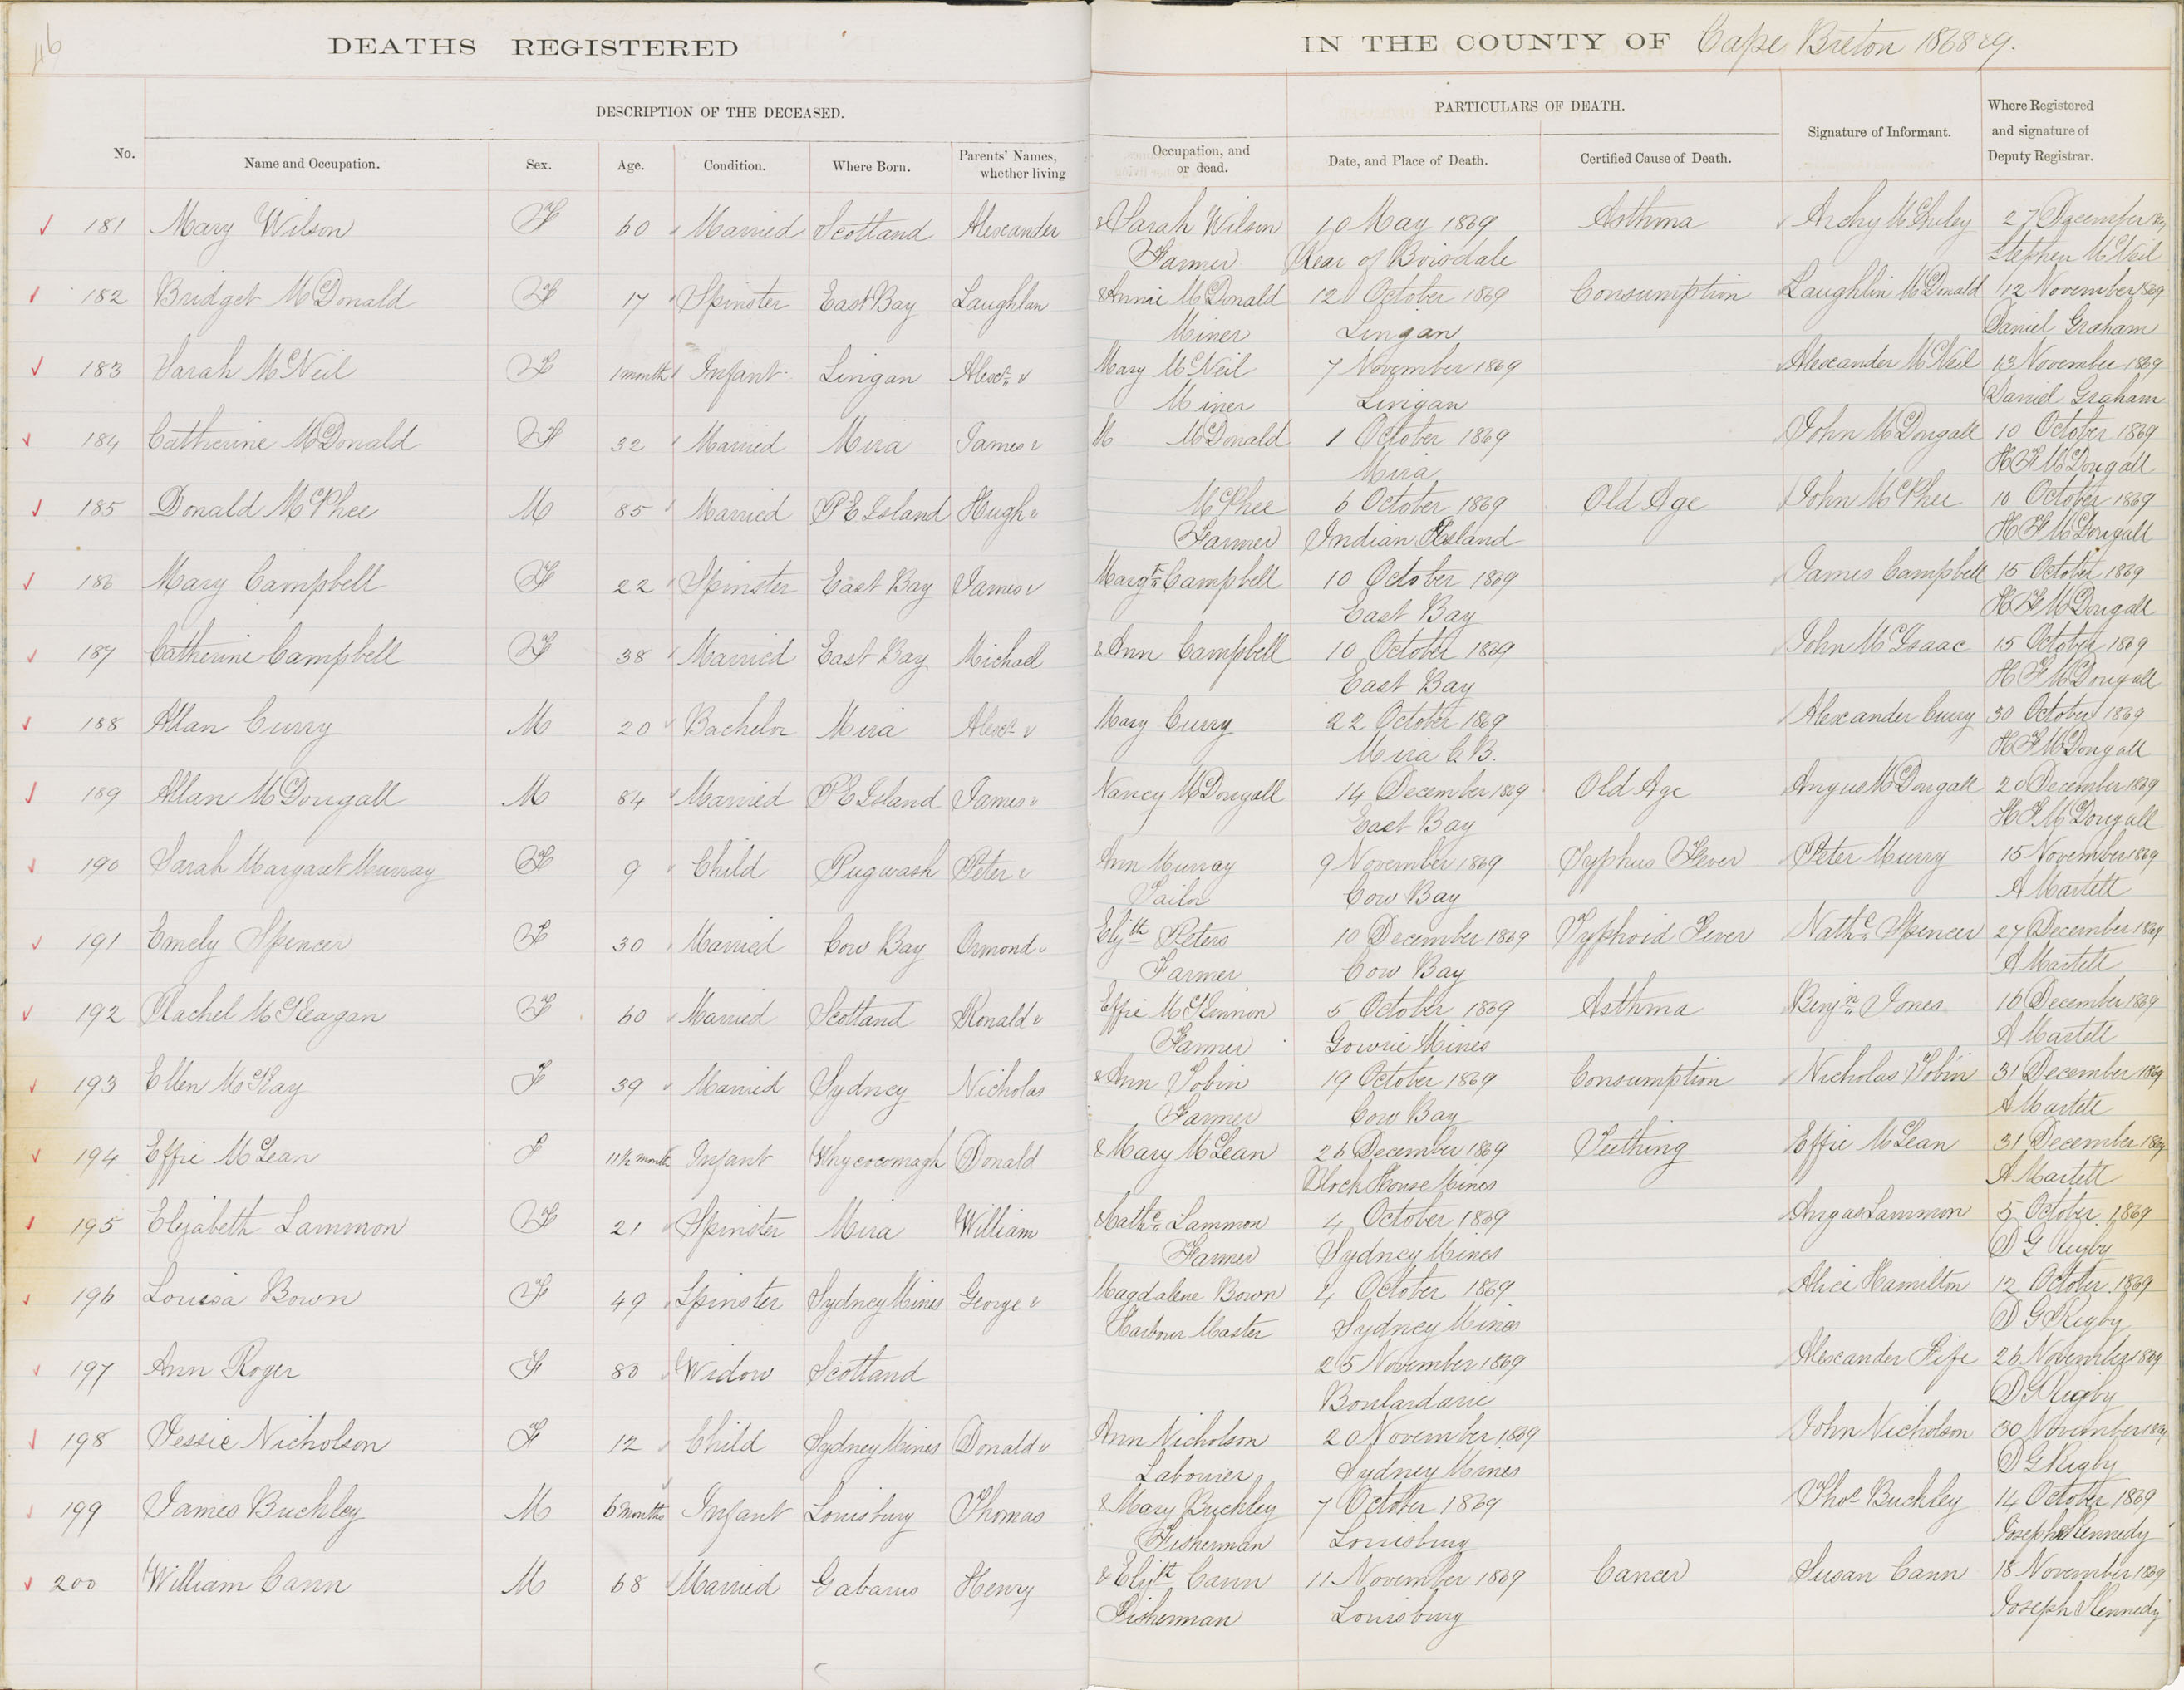 46
DEATHS REGISTERED IN THE COUNTY OF Cape Breton 1868 & 9.
DESCRIPTION OF THE DECEASED. PARTICULARS OF DEATH. Signature of Informant. Where Registered and signature of Deputy Registrar.
No. Name and Occupation. Sex. Age. Condition. Where Born. Parents' Names, whether living Occupation, and or dead. Date, and Place of Death. Certified Cause of Death.
181 Mary Wilson F 60 Married Scotland Alexander & Sarah Wilson 10 May 1869 Asthma Archy 27 December 1869
Farmer Rear of Boisdale Stephen McNeil
182 Bridget McDonald F 17 Spinster East Bay Laughlan & Annie McDonald 12 October 1869 Consumption Laughlin McDonald 12 November 1869
Miner Lingan Daniel Graham
183 Sarah McNeil F 1 month Infant Lingan Alexr & Mary McNeil 7 November 1869 Alexander McNeil 13 November 1869
Miner Lingan Daniel Graham
184 Catherine McDonald F 32 Married Mira James & M McDonald 1 October 1869 John McDougall 10 October 1869
Mira H F McDougall
185 Donald McPhee M 85 Married P E Island Hugh & McPhee 6 October 1869 Old Age John McPhee 10 October 1869
Farmer Indian Island H F McDougall
186 Mary Campbell F 22 Spinster East Bay James & Margt Campbell 10 October 1869 James Campbell 15 October 1869
East Bay H F McDougall
187 Catherine Campbell F 38 Married East Bay Michael & Ann Campbell 10 October 1869 John McIsaac 15 October 1869
East Bay H F McDougall
188 Allan Curry M 20 Bachelor Mira Alexr & Mary Curry 22 October 1869 Alexander Curry 30 October 1869
Mira C B. H F McDougall
189 Allan McDougall M 84 Married P E Island James & Nancy McDougall 14 December 1869 Old Age Angus McDougall 20 December 1869
East Bay H F McDougall
190 Sarah Margaret Murray F 9 Child Pugwash Peter & Ann Murray 9 November 1869 Typhus Fever Peter Murry 15 November 1869
Sailor Cow Bay A Martell
191 Emely Spencer F 30 Married Cow Bay Ormond & Elizth Peters 10 December 1869 Typhoid Fever Nathl Spencer 27 December 1869
Farmer Cow Bay A Martell
192 Rachel McKeagan F 60 Married Scotland Ronald & Effie McKinnon 5 October 1869 Asthma Benjn Jones 16 December 1869
Farmer Gowrie Mines A Martell
193 Ellen McKay F 39 Married Sydney Nicholas & Ann Tobin 19 October 1869 Consumption Nicholas Tobin 31 December 1869
Farmer Cow Bay A Martell
194 Effie McLean F 11½ month Infant Whycocomagh Donald & Mary McLean 26 December 1869 Teething Effie McLean 31 December 1869
Block House Mines A Martell
195 Elizabeth Lammon F 21 Spinster Mira William & Cathe Lammon 4 October 1869 Angus Lammon 5 October 1869
Farmer Sydney Mines D G Rigby
196 Louisa Bown F 49 Spinster Sydney Mines George & Magdalene Bown 4 October 1869 Alice Hamilton 12 October 1869
Harbour Master Sydney Mines D G Rigby
197 Ann Roger F 80 Widow Scotland 25 November 1869 Alexander Fife 26 November 1869
Boulardarie D G Rigby
198 Jessie Nicholson F 12 Child Sydney Mines Donald & Ann Nicholson 20 November 1869 John Nicholson 30 November 1869
Labourer Sydney Mines D G Rigby
199 James Buckley M 6 months Infant Louisburg Thomas & Mary Buckley 7 October 1869 Thos Buckley 14 October 1869
Fisherman Louisburg Joseph Kennedy
200 William Cann M 68 Married Gabarus Henry & Elizth Cann 11 November 1869 Cancer Susan Cann 18 November 1869
Fisherman Louisburg Joseph Kennedy